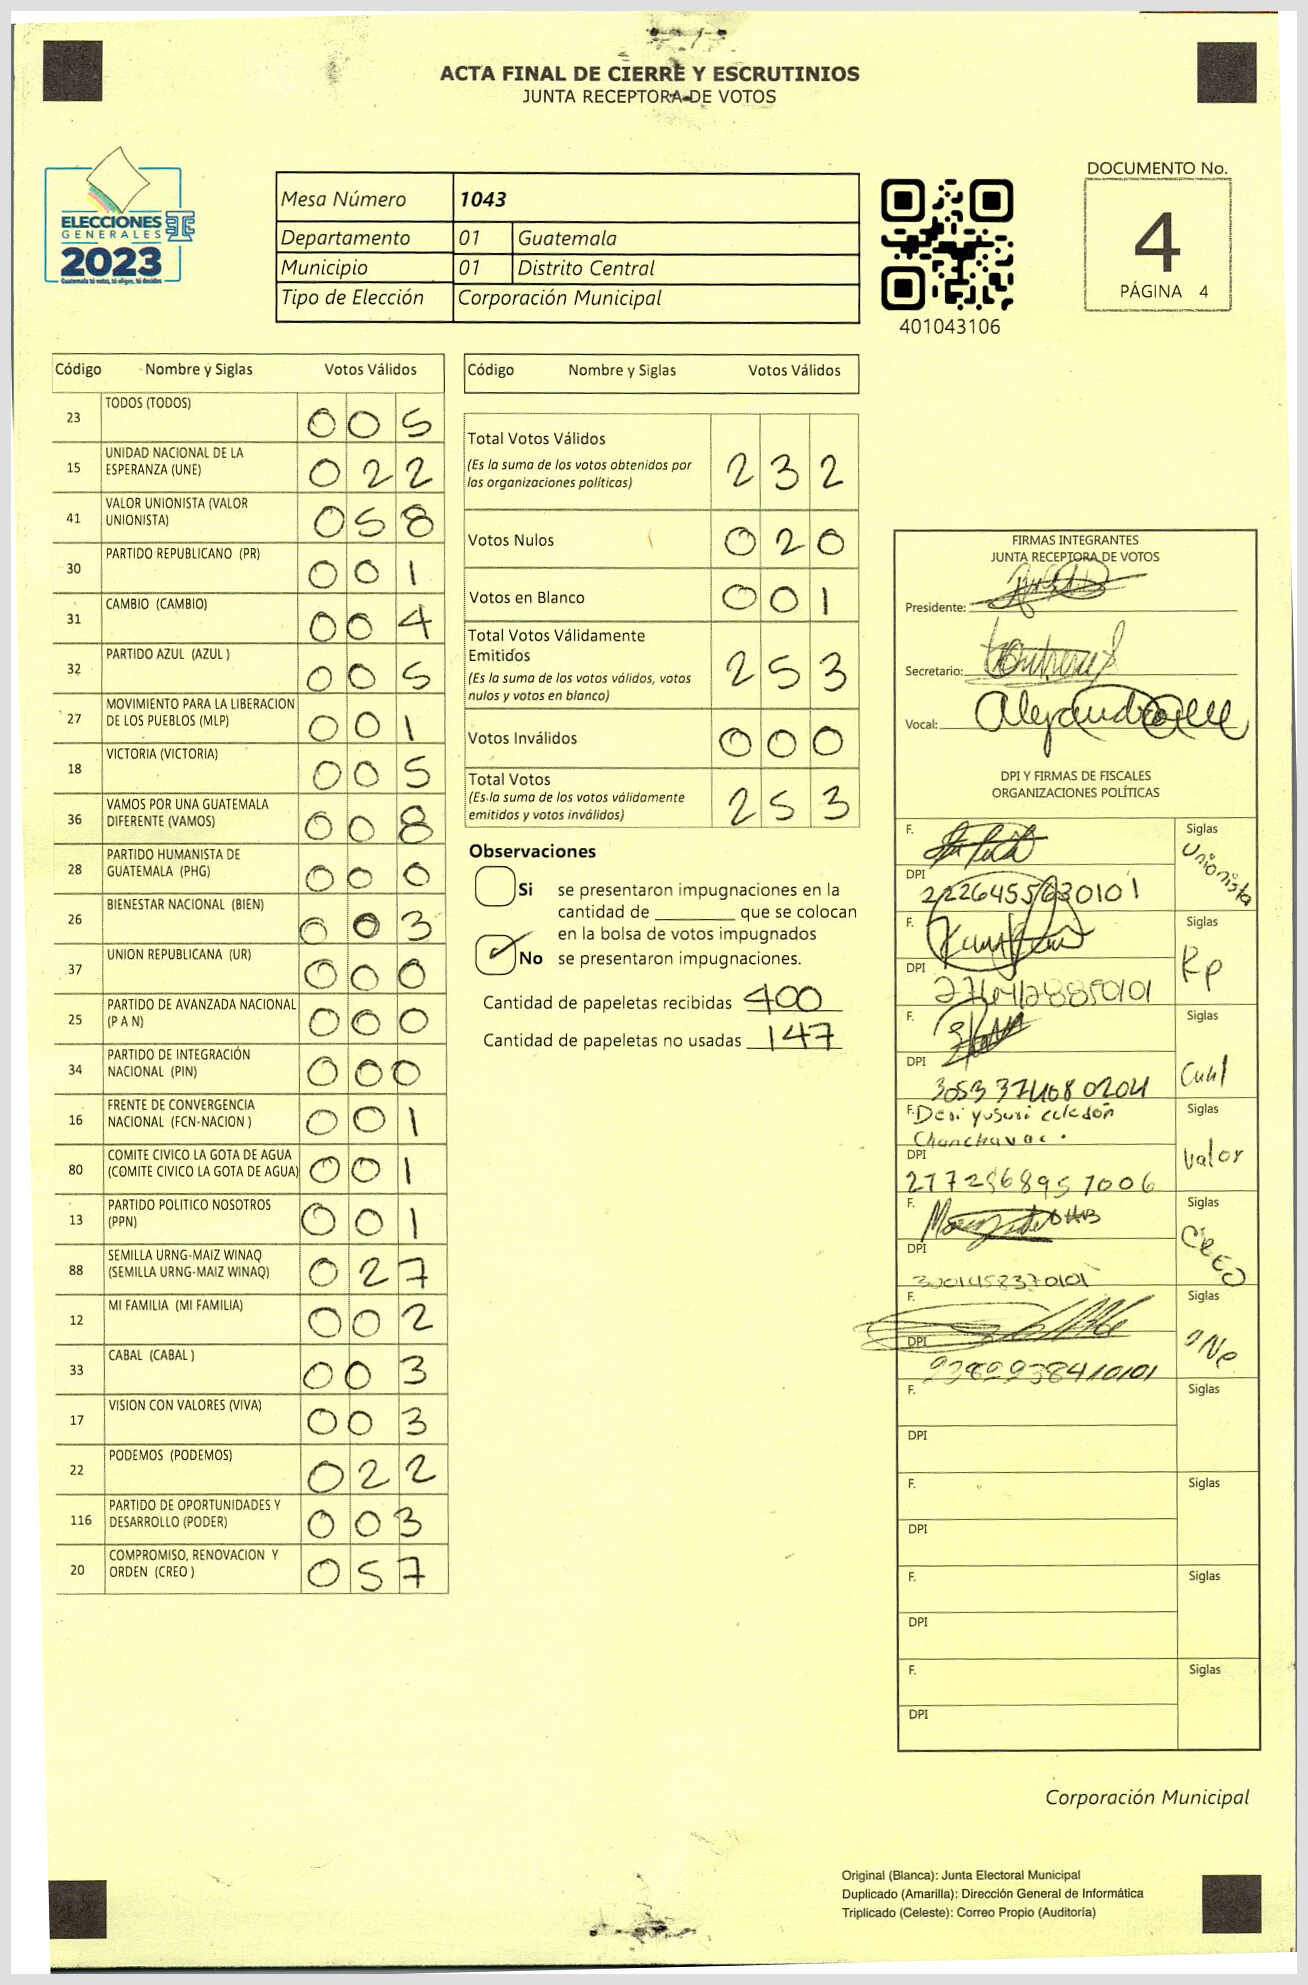 ACTA FINAL DE CIERRE Y ESCRUTINIOS
JUNTA RECEPTORA DE VOTOS
ELECCIONES
GENERALES
2023
Guatemala tú votas, tú eliges, tú decides
Mesa Número 1043
Departamento 01 Guatemala
Municipio 01 Distrito Central
Tipo de Elección Corporación Municipal
401043106
DOCUMENTO No.
4
PÁGINA 4
Código Nombre y Siglas Votos Válidos
23 TODOS (TODOS) 005
15 UNIDAD NACIONAL DE LA ESPERANZA (UNE) 022
41 VALOR UNIONISTA (VALOR UNIONISTA) 058
30 PARTIDO REPUBLICANO (PR) 001
31 CAMBIO (CAMBIO) 004
32 PARTIDO AZUL (AZUL ) 005
27 MOVIMIENTO PARA LA LIBERACION DE LOS PUEBLOS (MLP) 001
18 VICTORIA (VICTORIA) 005
36 VAMOS POR UNA GUATEMALA DIFERENTE (VAMOS) 008
28 PARTIDO HUMANISTA DE GUATEMALA (PHG) 000
26 BIENESTAR NACIONAL (BIEN) 003
37 UNION REPUBLICANA (UR) 000
25 PARTIDO DE AVANZADA NACIONAL (P A N) 000
34 PARTIDO DE INTEGRACIÓN NACIONAL (PIN) 000
16 FRENTE DE CONVERGENCIA NACIONAL (FCN-NACION ) 001
80 COMITE CIVICO LA GOTA DE AGUA (COMITE CIVICO LA GOTA DE AGUA) 001
13 PARTIDO POLITICO NOSOTROS (PPN) 001
88 SEMILLA URNG-MAIZ WINAQ (SEMILLA URNG-MAIZ WINAQ) 027
12 MI FAMILIA (MI FAMILIA) 002
33 CABAL (CABAL ) 003
17 VISION CON VALORES (VIVA) 003
22 PODEMOS (PODEMOS) 022
116 PARTIDO DE OPORTUNIDADES Y DESARROLLO (PODER) 003
20 COMPROMISO, RENOVACION Y ORDEN (CREO ) 057
Código Nombre y Siglas Votos Válidos
Total Votos Válidos 232
(Es la suma de los votos obtenidos por
las organizaciones políticas)
Votos Nulos 020
Votos en Blanco 001
Total Votos Válidamente
Emitidos 253
(Es la suma de los votos válidos, votos
nulos y votos en blanco)
Votos Inválidos 000
Total Votos 253
(Es la suma de los votos válidamente
emitidos y votos inválidos)
Observaciones
Si se presentaron impugnaciones en la
cantidad de ________ que se colocan
en la bolsa de votos impugnados
No se presentaron impugnaciones.
Cantidad de papeletas recibidas 400
Cantidad de papeletas no usadas 147
FIRMAS INTEGRANTES
JUNTA RECEPTORA DE VOTOS
Presidente:
Secretario:
Vocal: Alejandra
DPI Y FIRMAS DE FISCALES
ORGANIZACIONES POLÍTICAS
F. Siglas
Unionista
DPI
2226455630101
F. Siglas
Rp
DPI
F. Siglas
DPI
F. Siglas
Valor
DPI
F. Siglas
CREO
DPI
3001458370101
F. Siglas
UNe
DPI
F. Siglas
DPI
F. Siglas
DPI
F. Siglas
DPI
F. Siglas
DPI
Corporación Municipal
Original (Blanca): Junta Electoral Municipal
Duplicado (Amarilla): Dirección General de Informática
Triplicado (Celeste): Correo Propio (Auditoría)